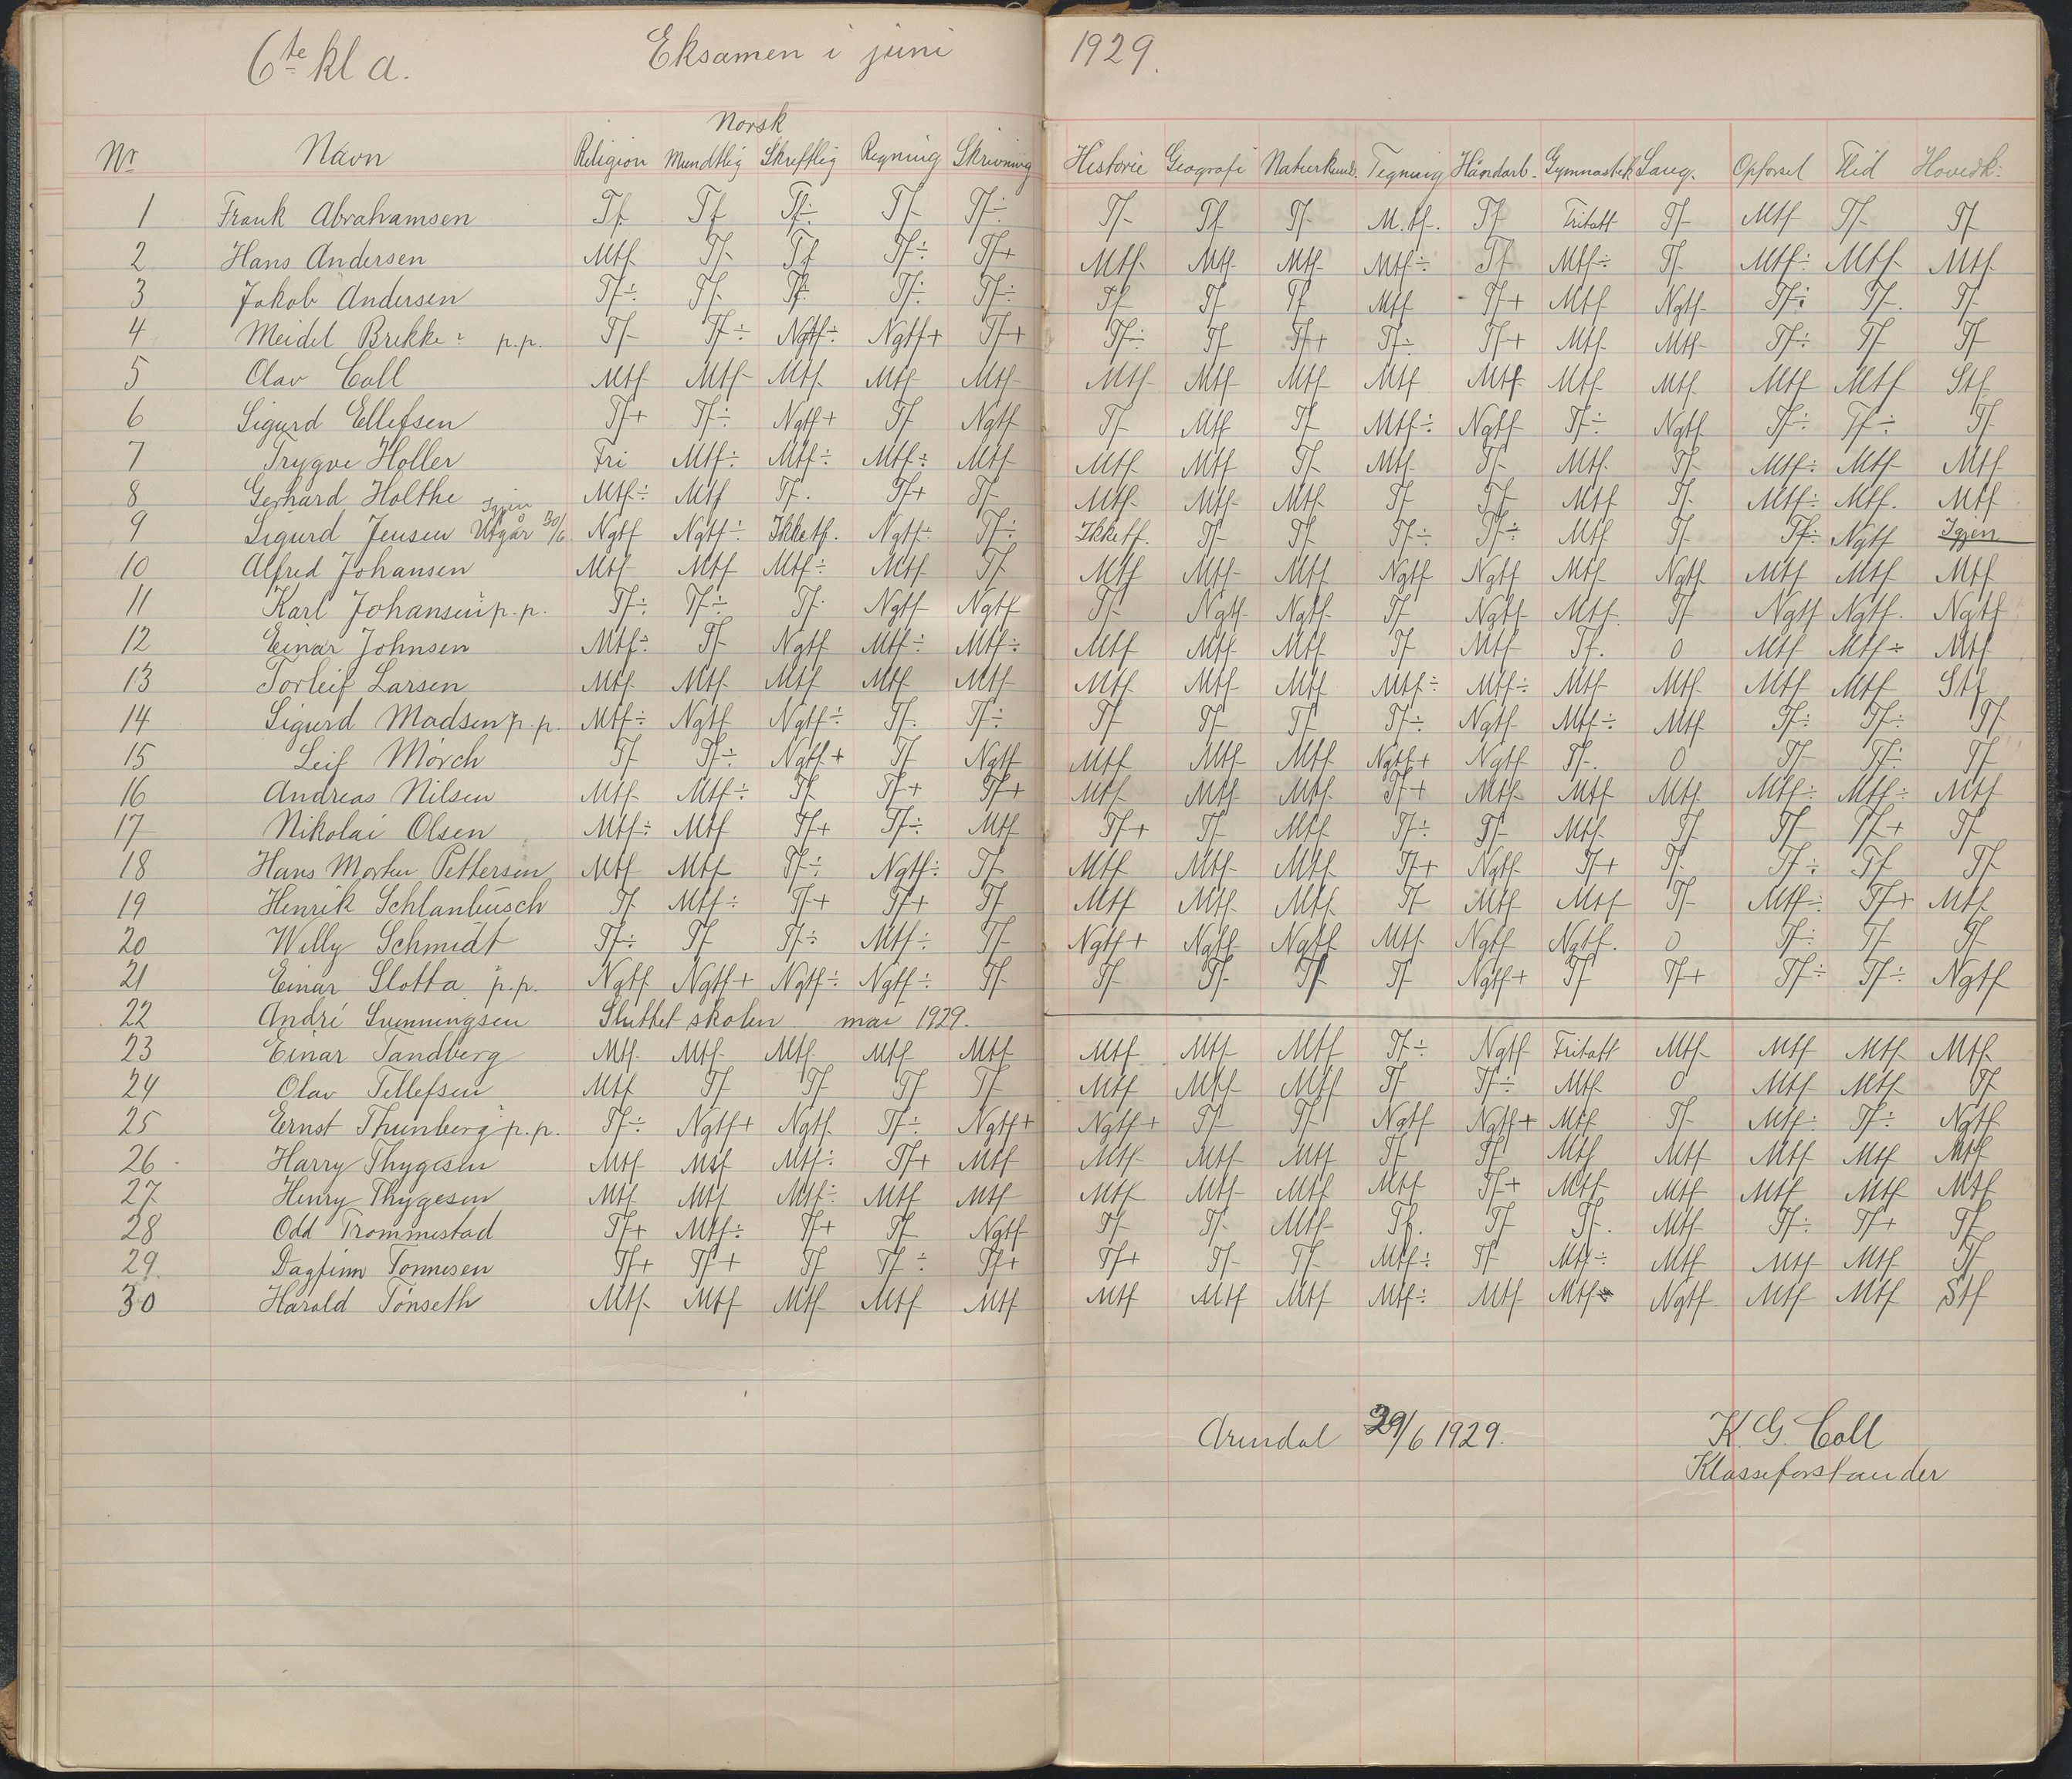 6te kl a. Eksamen i juni 1929.
Norsk
Nr Navn Religion Mundtlig Skriftlig Regning Skrivning Historie Geografi Naturkund. Tegning Håndarb. Gymnastik Sang. Opførsel Flid Hovedk.
1 Frank Abrahamsen Tf Tf Tf÷ Tf Tf÷ Tf Tf Tf M.tf. Tf Fritatt Tf Mtf Tf Tf
2 Hans Andersen Mtf Tf Tf Tf÷ Tf+ Mtf Mtf Mtf Mtf÷ Tf Mtf÷ Tf Mtf÷ Mtf Mtf
3 Jakob Andersen Tf÷ Tf Tf Tf÷ Tf÷ Tf Tf Tf Mtf Tf+ Mtf Ngtf Tf÷ Tf Tf
4 Meidel Brekke p.p. Tf Tf÷ Ngtf÷ Ngtf+ Tf+ Tf÷ Tf Tf+ Tf÷ Tf+ Mtf Mtf Tf÷ Tf Tf
5 Olav Coll Mtf Mtf Mtf Mtf Mtf Mtf Mtf Mtf Mtf Mtf Mtf Mtf Mtf Mtf Stf
6 Sigurd Ellefsen Tf+ Tf÷ Ngtf+ Tf Ngtf Tf Mtf Tf Mtf÷ Ngtf Tf÷ Ngtf Tf÷ Tf÷ Tf
7 Trygve Holler Fri Mtf÷ Mtf÷ Mtf÷ Mtf Mtf Mtf Tf Mtf Tf Mtf Tf Mtf÷ Mtf Mtf
8 Gerhard Holthe Mtf÷ Mtf Tf. Tf+ Tf Mtf Mtf Mtf Tf Tf Mtf Tf Mtf÷ Mtf. Mtf
Igjen
9 Sigurd Jensen Utgår 30/6 Ngtf Ngtf÷ Ikketf. Ngtf÷ Tf÷ Ikketf. Tf Tf Tf÷ Tf÷ Mtf Tf Tf÷ Ngtf Igjen
10 Alfred Johansen Mtf Mtf Mtf÷ Mtf Tf Mtf Mtf Mtf Ngtf Ngtf Mtf Ngtf Mtf Mtf Mtf
11 Karl Johansen p.p. Tf÷ Tf÷ Tf Ngtf Ngtf Tf Ngtf Ngtf Tf Ngtf Mtf Tf Ngtf Ngtf. Ngtf
12 Einar Johnsen Mtf÷ Tf Ngtf Mtf÷ Mtf÷ Mtf Mtf Mtf Tf Mtf Tf. 0 Mtf Mtf÷ Mtf
13 Torleif Larsen Mtf Mtf Mtf Mtf Mtf Mtf Mtf Mtf Mtf÷ Mtf÷ Mtf Mtf Mtf Mtf Stf
14 Sigurd Madsen p.p. Mtf÷ Ngtf Ngtf÷ Tf. Tf÷ Tf Tf Tf Tf÷ Ngtf Mtf÷ Mtf Tf÷ Tf÷ Tf
15 Leif Mörch Tf Tf÷ Ngtf+ Tf Ngtf Mtf Mtf Mtf Ngtf+ Ngtf Tf. 0 Tf Tf÷ Tf
16 Andreas Nilsen Mtf Mtf÷ Tf Tf+ Tf+ Mtf Mtf Mtf Tf+ Mtf Mtf Mtf Mtf÷ Mtf÷ Mtf
17 Nikolai Olsen Mtf÷ Mtf Tf+ Tf÷ Mtf Tf+ Tf Mtf Tf÷ Tf Mtf Tf Tf Tf+ Tf
18 Hans Morten Pettersen Mtf Mtf Tf÷ Ngtf÷ Tf Mtf Mtf Mtf Tf+ Ngtf Tf+ Tf Tf÷ Tf Tf
19 Henrik Schlanbusch Tf Mtf÷ Tf+ Tf+ Tf Mtf Mtf Mtf Tf Mtf Mtf Tf Mtf÷ Tf+ Mtf
20 Willy Schmidt Tf÷ Tf Tf÷ Mtf÷ Tf Ngtf+ Ngtf Ngtf Mtf Ngtf Ngtf. 0 Tf÷ Tf Tf
21 Einar Slotta p.p. Ngtf Ngtf+ Ngtf÷ Ngtf÷ Tf Tf Tf Tf Tf Ngtf+ Tf Tf+ Tf÷ Tf÷ Ngtf
22 André Svenningsen Sluttet skolen mai 1929.
23 Einar Tandberg Mtf Mtf Mtf Mtf Mtf Mtf Mtf Mtf Tf÷ Ngtf Fritatt Mtf Mtf Mtf Mtf
24 Olav Tellefsen Mtf Tf Tf Tf Tf Mtf Mtf Mtf Tf Tf÷ Mtf 0 Mtf Mtf Tf
25 Ernst Thunberg p.p. Tf÷ Ngtf+ Ngtf Tf÷ Ngtf+ Ngtf+ Tf Tf Ngtf Ngtf+ Mtf Tf Mtf÷ Tf÷ Ngtf
26 Harry Thygesen Mtf Mtf Mtf÷ Tf+ Mtf Mtf Mtf Mtf Tf Tf Mtf Mtf Mtf Mtf Mtf
27 Henry Thygesen Mtf Mtf Mtf÷ Mtf Mtf Mtf Mtf Mtf Mtf Tf+ Mtf Mtf Mtf Mtf Mtf
28 Odd Trommestad Tf+ Mtf÷ Tf+ Tf Ngtf Tf Tf Mtf Tf. Tf Tf. Mtf Tf÷ Tf+ Tf
29 Dagfinn Tönnesen Tf+ Tf+ Tf Tf÷ Tf+ Tf+ Tf Tf Mtf÷ Tf Mtf÷ Mtf Mtf Mtf Tf
30 Harald Tönseth Mtf Mtf Mtf Mtf Mtf Mtf Mtf Mtf Mtf÷ Mtf Mtf Ngtf Mtf Mtf Stf
Arendal 29/6 1929. K. G. Coll
Klasseforstander